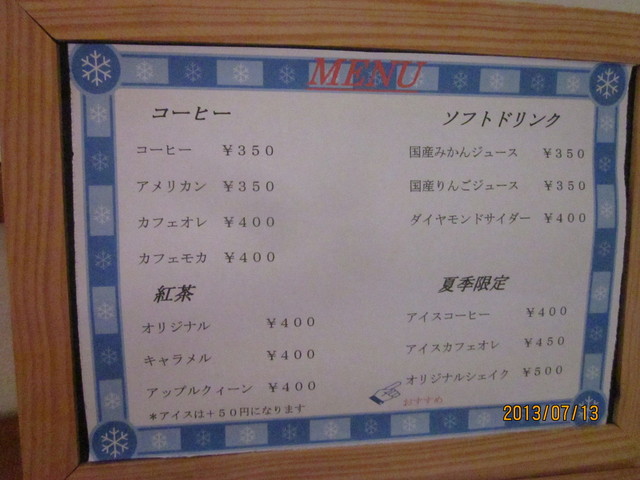 MENU
コーヒー
コーヒー ￥３５０
アメリカン ￥３５０
カフェオレ ￥４００
カフェモカ ￥４００
紅茶
オリジナル ￥４００
キャラメル ￥４００
アップルクィーン ￥４００
＊アイスは＋５０円になります
ソフトドリンク
国産みかんジュース ￥３５０
国産りんごジュース ￥３５０
ダイヤモンドサイダー ￥４００
夏季限定
アイスコーヒー ￥４００
アイスカフェオレ ￥４５０
オリジナルシェイク ￥５００
おすすめ
2013/07/13